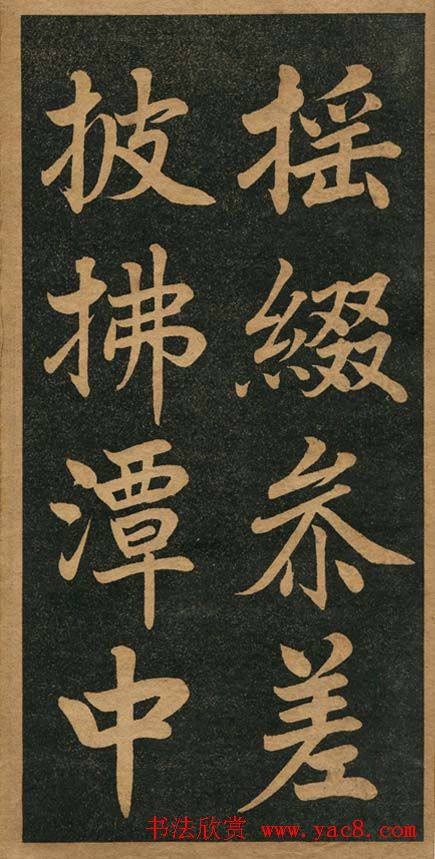 摇缀参差
披拂潭中
书法欣赏 www.yac8.com